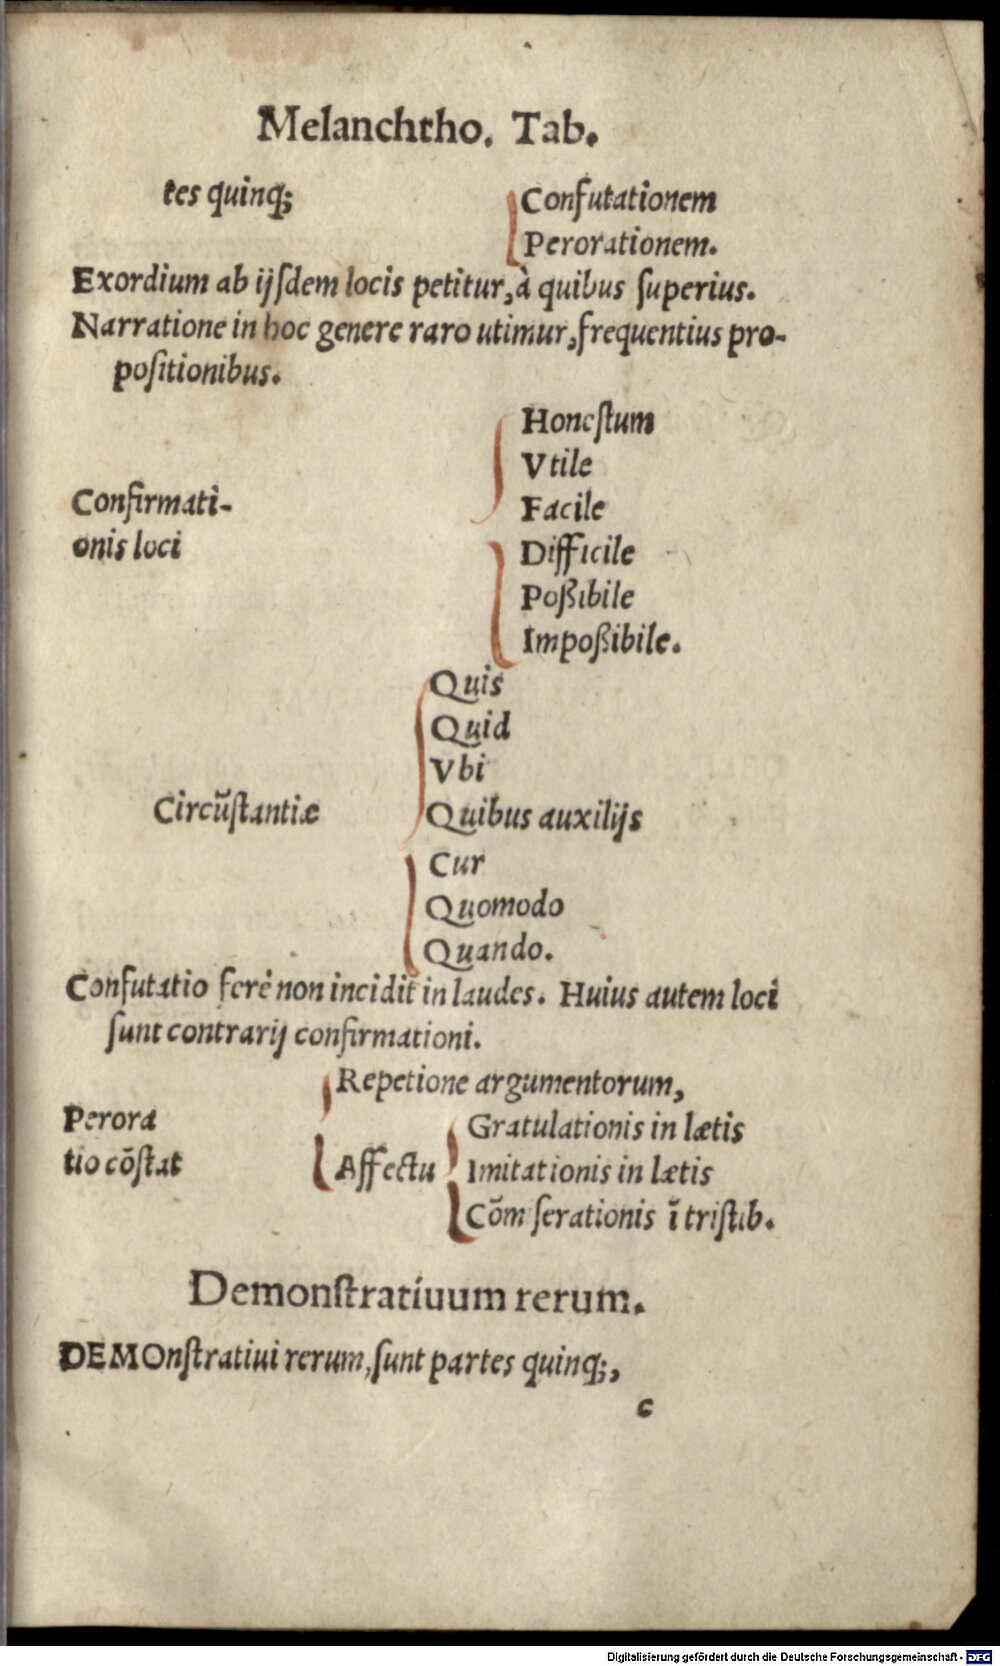 Melanchtho. Tab.
tes quinq;
Confutationem
Perorationem.
Exordium ab ijsdem locis petitur, à quibus superius.
Narratione in hoc genere raro utimur, frequentius pro-
positionibus.
Confirmati-
onis loci
Honestum
Vtile
Facile
Difficile
Poßibile
Impoßibile.
Circũstantiæ
Quis
Quid
Vbi
Quibus auxilijs
Cur
Quomodo
Quando.
Confutatio ferè non incidit in laudes. Huius autem loci
sunt contrarij confirmationi.
Perora
tio cõstat
Repetione argumentorum,
Affectu
Gratulationis in lætis
Imitationis in lætis
Cõm serationis ĩ tristib.
Demonstratiuum rerum.
DEMOnstratiui rerum, sunt partes quinq;,
c
Digitalisierung gefördert durch die Deutsche Forschungsgemeinschaft - DFG